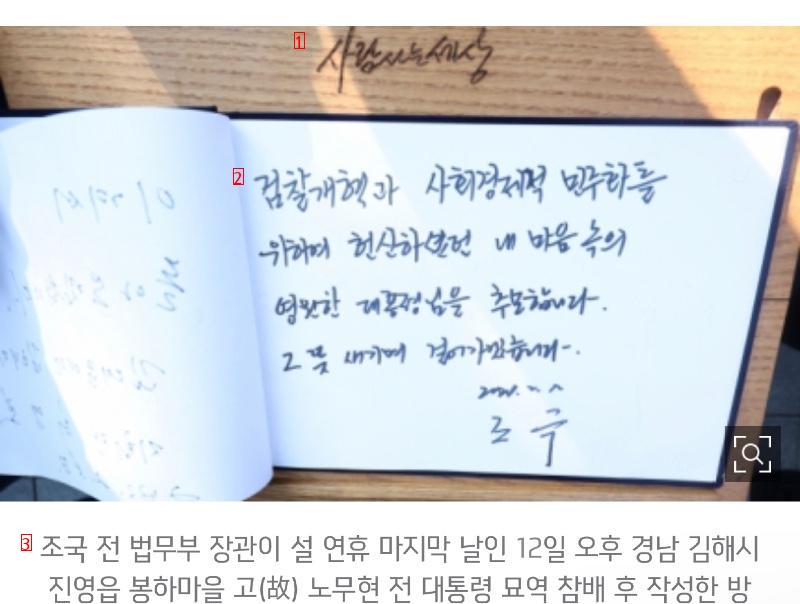 1 사람사는세상
2 검찰개혁과 사회경제적 민주화를
위하여 헌신하셨던 내 마음 속의
영원한 대통령님을 추모합니다.
그 뜻 새기며 걸어가겠습니다.
2024.
조 국
3 조국 전 법무부 장관이 설 연휴 마지막 날인 12일 오후 경남 김해시
진영읍 봉하마을 고(故) 노무현 전 대통령 묘역 참배 후 작성한 방